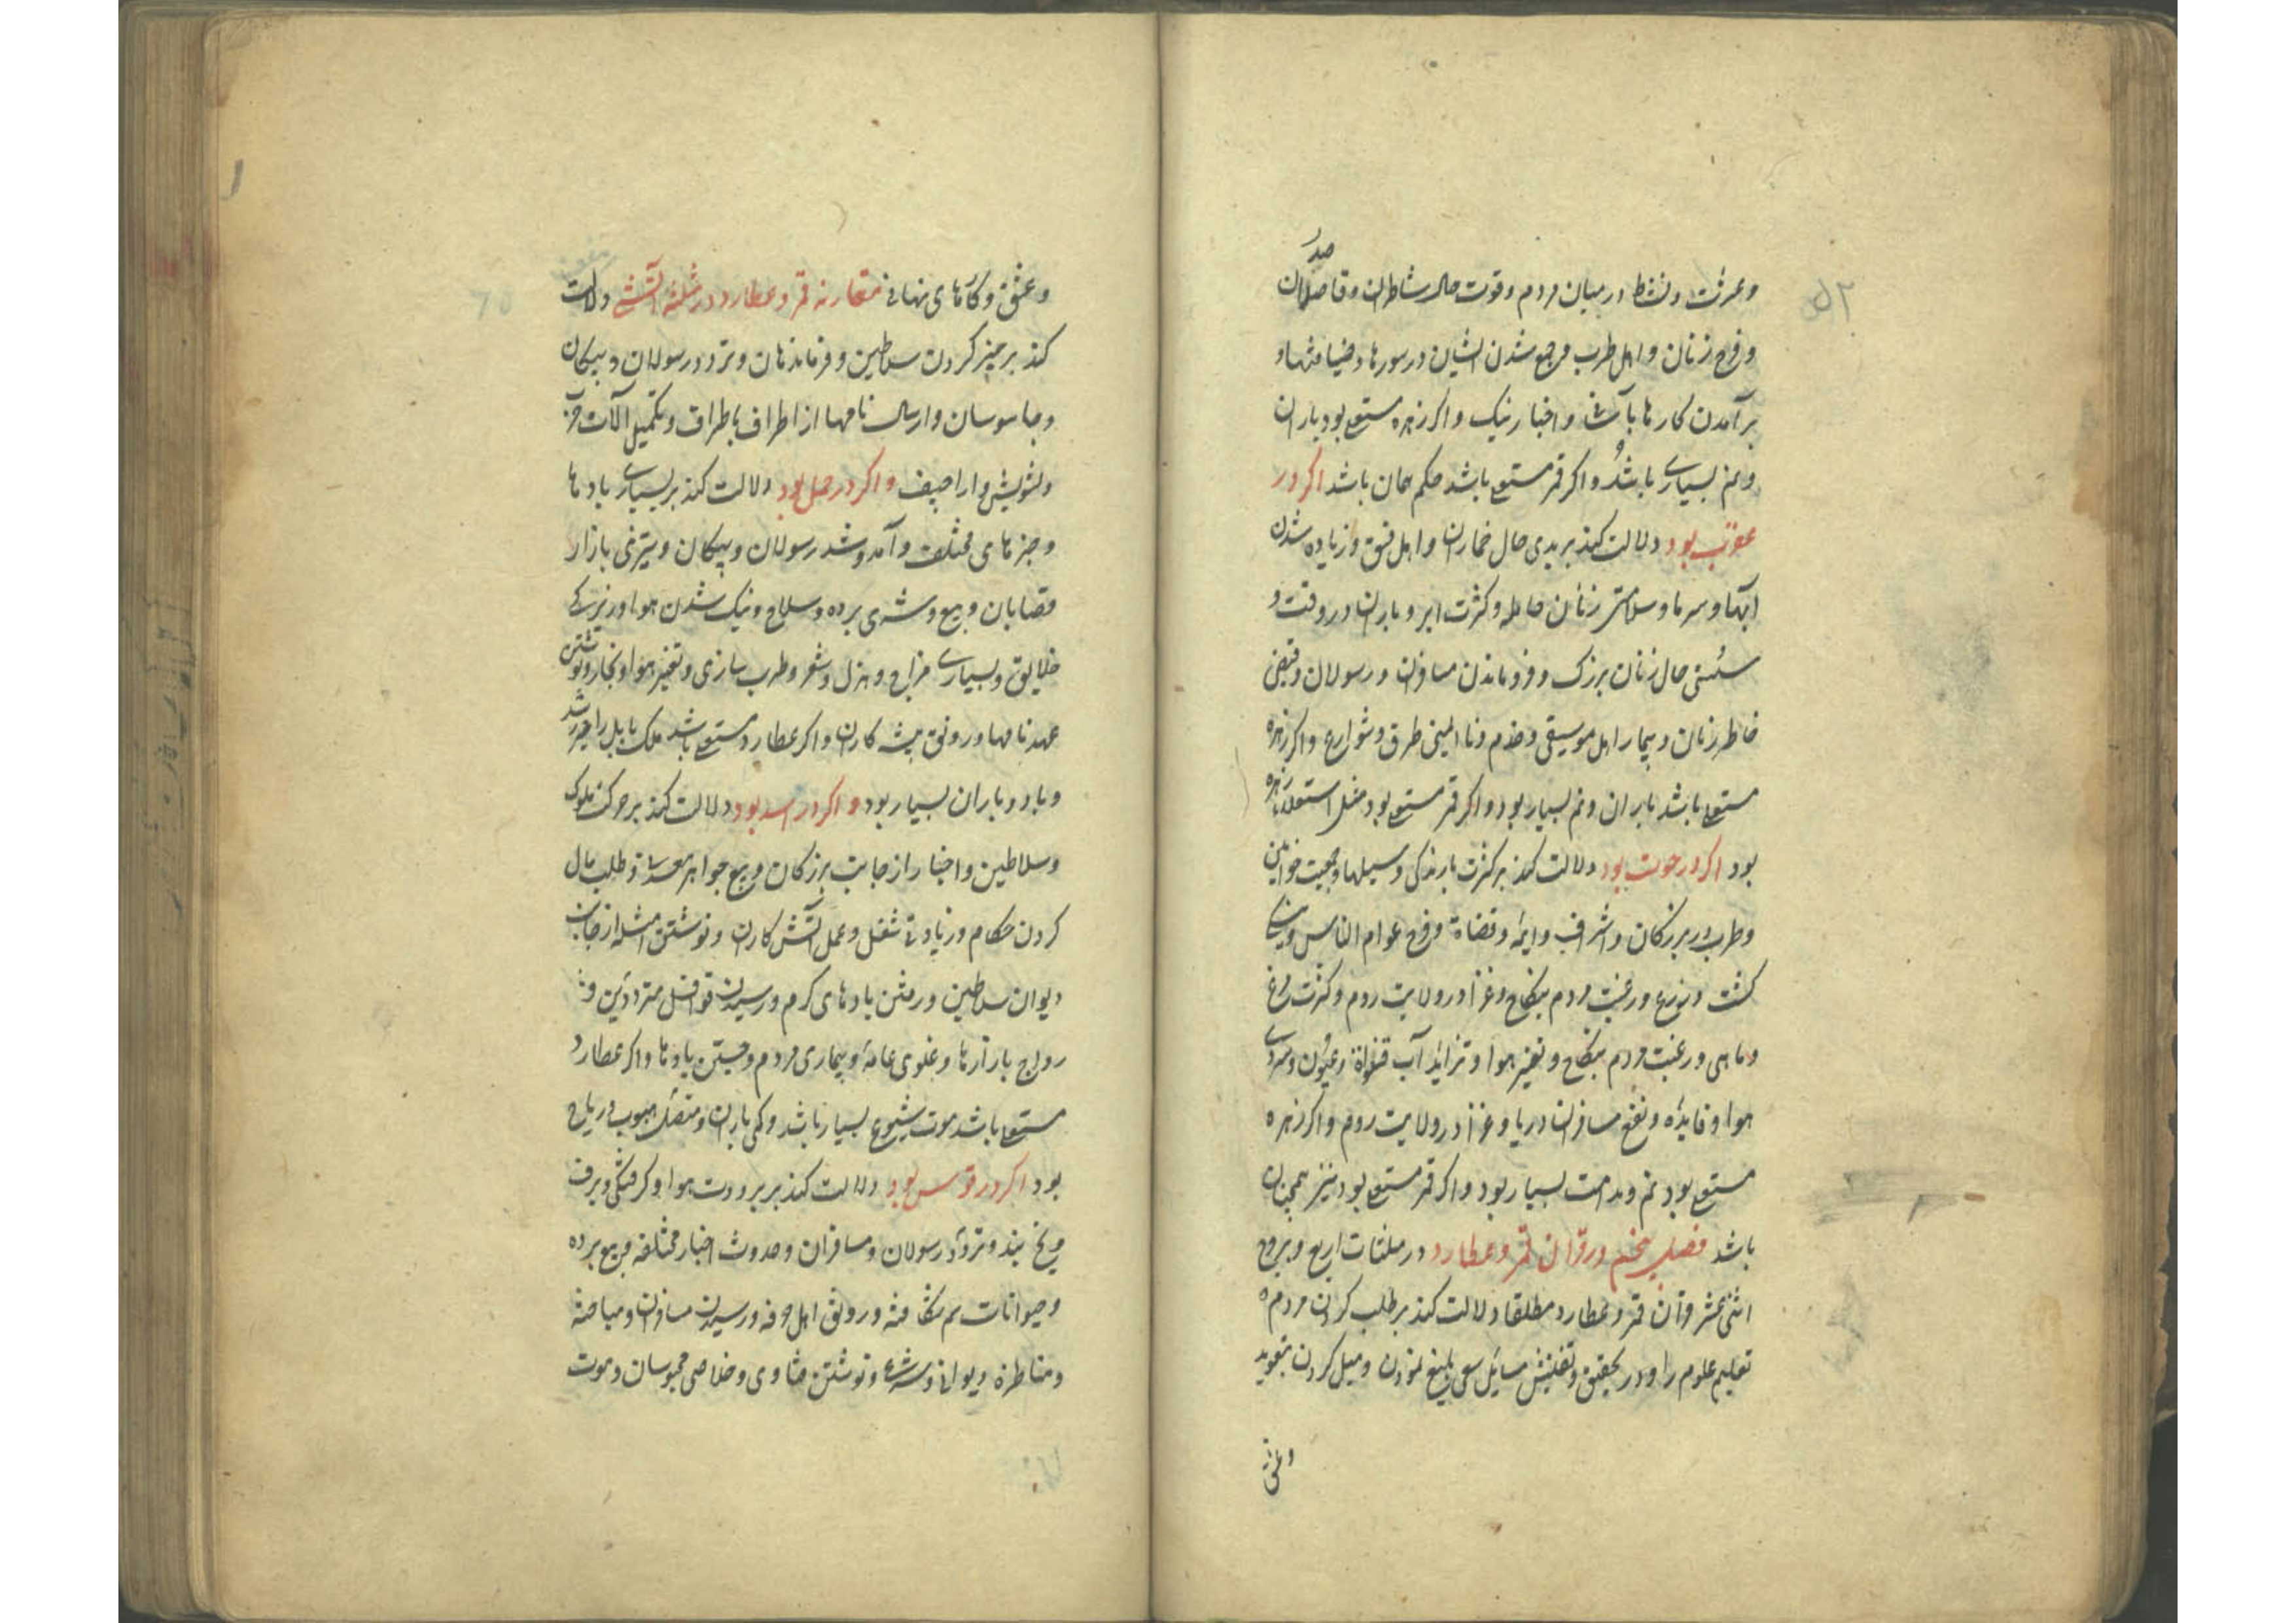 ۵۲
صدر
وعشرت ونشاط در میان مردم وقوت حال شاطران وقاصدان
وفرح زنان واهل طرب وجمع شدن ایشان در سورها وضیافتها و
برآمدن کارها بآسانی واخبار نیک واکر زهره مستعلی بود باران
ونم بسیاری باشد واکر قمر مستعلی باشد حکم همان باشد اکر در
عقرب بود دلالت کند بر بدی حال خماران واهل فسق وزیاده شدن
آبها وسرما وسلامتی زنان حامله وکثرت ابر وباران در وقت و
سستی حال زنان بزرک وفروماندن مسافران ورسولان وقبض
خاطر زنان وبیمار اهل موسیقی وخدم وناایمنی طرق وشوارع واکر زهره
مستعلی باشد باران ونم بسیار بود واکر قمر مستعلی بود مثل استعلاء زهره
بود اکر در حوت بود دلالت کند بر کثرت بارندکی وسیلها وجمعیت خواتین
وطرب در بزرکان واشراف وایمه وقضاة وفرح عوام الناس
کشت وزرع ورغبت مردم بنکاح وغزا در ولایت روم وکثرت مرغ
وماهی ورغبت مردم بنکاح وتغیر هوا وتزاید آب قنواة وعیون وسردی
هوا وفایده ونفع مسافران دریا وغزا در ولایت روم واکر زهره
مستعلی بود نم ونداوت بسیار بود واکر قمر مستعلی بود نیز همچنان
باشد فصل پنجم در قران قمر وعطارد در مثلثات اربع وبروج
اثنی عشر قران قمر وعطارد مطلقا دلالت کند بر طلب کردن مردم
تعلیم علوم را ودر تحقیق وتفتیش مسایل سعی بلیغ نمودن ومیل کردن بتعوید
وعشق وکارهای نهانی مقارنه قمر وعطارد در مثلثه آتشی دلالت
کند بر حیز کردن سلاطین وفرماندهان وتردد رسولان وپیکان
وجاسوسان وارسال نامها از اطراف باطراف وتکمیل آلات حرب
وتشویش واراجیف واکر در حمل بود دلالت کند بر بسیاری بادها
وخبرهای مختلف وآمد وشد رسولان وپیکان وتیزی بازار
قصابان وبیع وشری برده وسلاح ونیک شدن هوا وزیرکی
خلایق وبسیاری مزاح وهزل وشعر وطرب سازی وتغیر هوا وبخار ونوشتن
عهدنامها ورونق پیشه کاران واکر عطارد مستعلی باشد ملک بابل را خیر رسد
وباد وباران بسیار بود واکر در اسد بود دلالت کند بر حرکت ملوک
وسلاطین واخبار از جانب بزرکان وبیع جواهر معدنی وطلب مال
کردن حکام وزیادتی شغل وعمل آتش کاران ونوشتن امثله از جانب
دیوان سلاطین ورفتن بادهای کرم ورسیدن قوافل مترددین و
رواج بازارها وغلوی عامه وبیماری مردم وجستن بادها واکر عطارد
مستعلی باشد موت شیوع بسیار باشد وکمی باران ومتصل هبوب ریاح
بود اکر در قوس بود دلالت کند بر برودت هوا وکرفتکی وبرف
ویخ بند وتردد رسولان ومسافران وحدوث اخبار مختلفه وبیع برده
وحیوانات سم شکافته ورونق اهل حرفه ورسیدن مسافران ومباحثه
ومناظره دیوانی وشرعی ونوشتن فتاوی وخلاصی محبوسان وموت